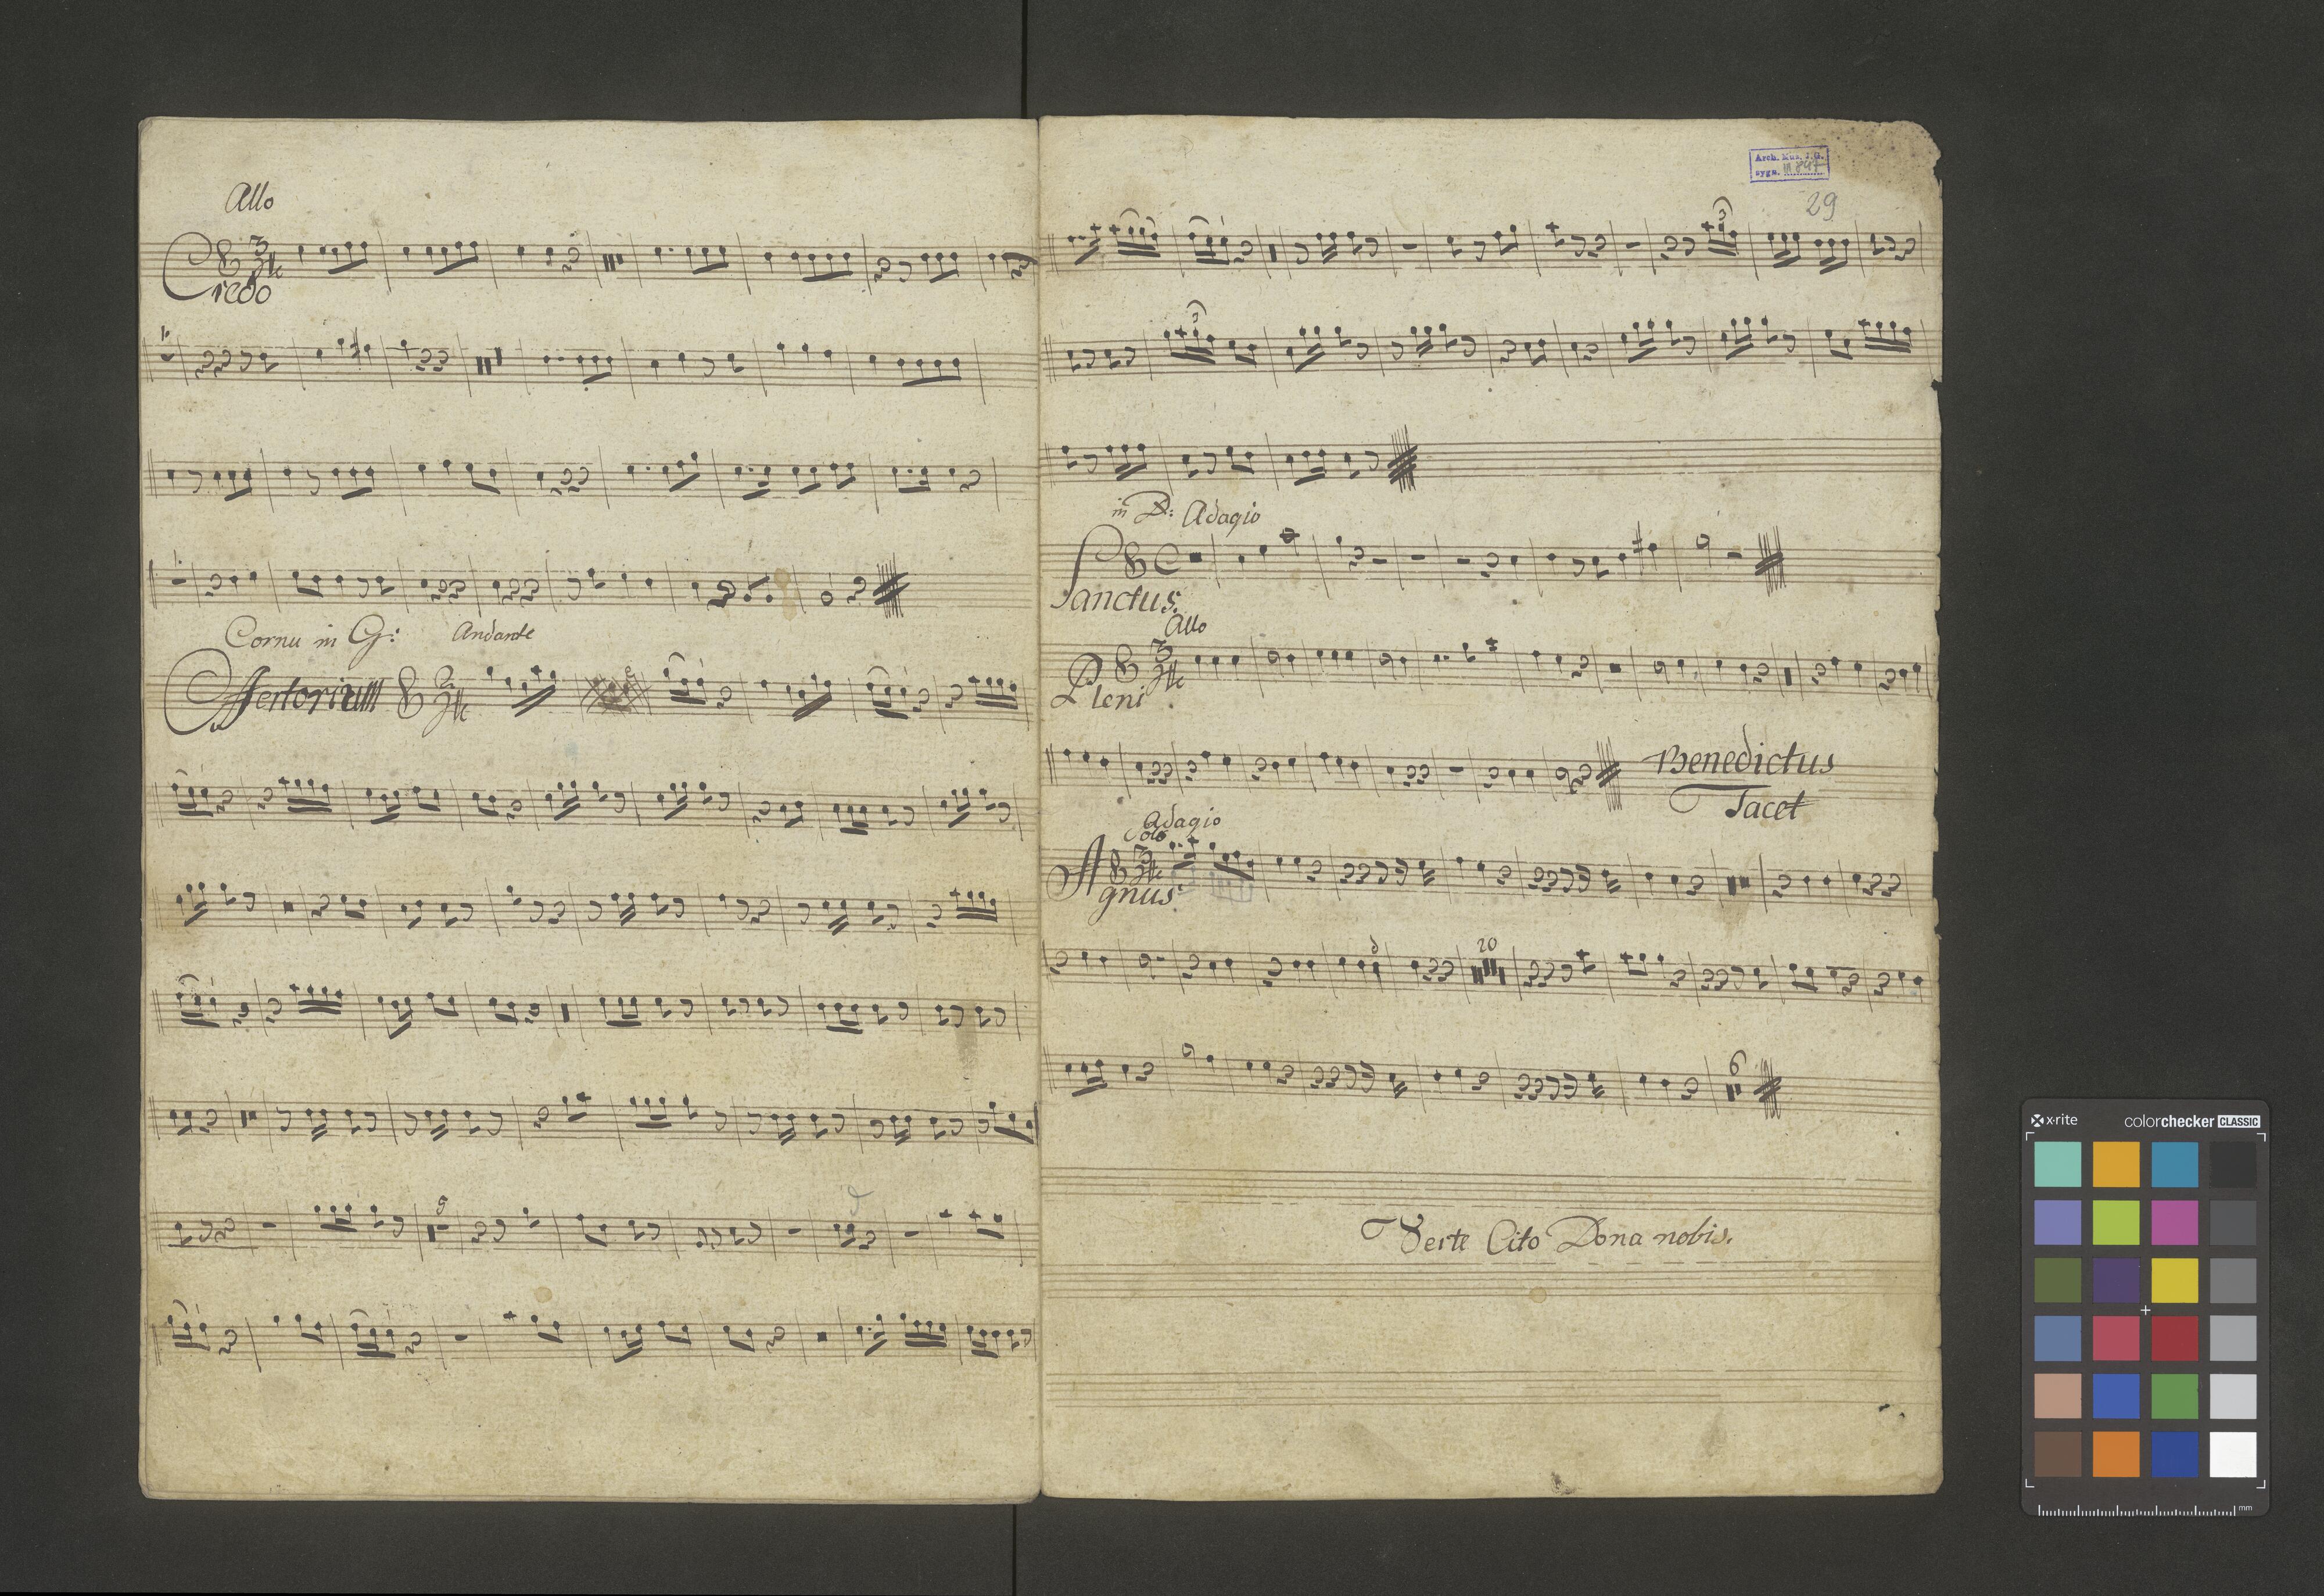 Allo
Credo
Cornu in G: Andante
Offertorium
9
Arch. Mus. J.G.
sygn.
29
3
3
in D: Adagio
Sanctus.
Allo
Pleni
Benedictus
Tacet
Adagio
Solo
Agnus
20
6
Verte Cito Dona nobis.
x·rite colorchecker CLASSIC
mm